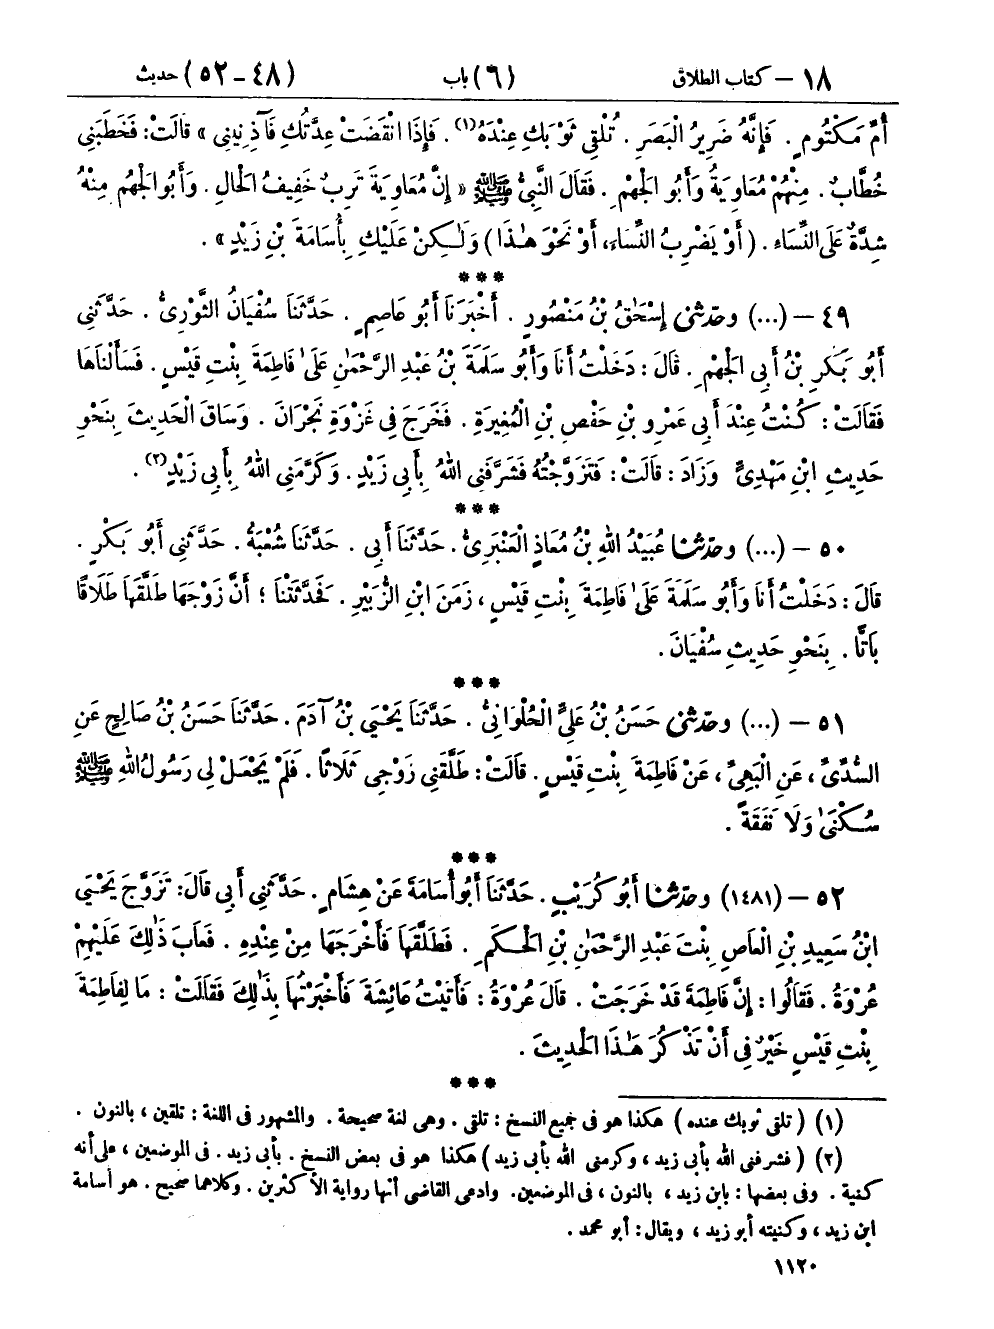 ١٨ – كتاب الطلاق (٦) باب (٤٨ – ٥٢) حديث
أُمِّ مَكْتُومٍ . فَإِنَّهُ ضَرِيرُ الْبَصَرِ . تُلْقِي ثَوْبَكِ عِنْدَهُ(١) . فَإِذَا انْقَضَتْ عِدَّتُكِ فَآذِنِينِي » قَالَتْ: فَخَطَبَنِي
خُطَّابٌ . مِنْهُمْ مُعَاوِيَةُ وَأَبُو الْجَهْمِ . فَقَالَ النَّبِيُّ ﷺ « إِنَّ مُعَاوِيَةَ تَرِبٌ خَفِيفُ الْحَالِ . وَأَبُو الْجَهْمِ مِنْهُ
شِدَّةٌ عَلَى النِّسَاءِ . ( أَوْ يَضْرِبُ النِّسَاءَ، أَوْ نَحْوَ هَٰذَا ) وَلَٰكِنْ عَلَيْكِ بِأُسَامَةَ بْنِ زَيْدٍ » .
***
٤٩ – (...) وحدثني إِسْحَٰقُ بْنُ مَنْصُورٍ . أَخْبَرَنَا أَبُو عَاصِمٍ . حَدَّثَنَا سُفْيَانُ الثَّوْرِيُّ . حَدَّثَنِي
أَبُو بَكْرِ بْنُ أَبِي الْجَهْمِ . قَالَ : دَخَلْتُ أَنَا وَأَبُو سَلَمَةَ بْنُ عَبْدِ الرَّحْمَٰنِ عَلَىٰ فَاطِمَةَ بِنْتِ قَيْسٍ . فَسَأَلْنَاهَا
فَقَالَتْ : كُنْتُ عِنْدَ أَبِي عَمْرِو بْنِ حَفْصِ بْنِ الْمُغِيرَةِ . فَخَرَجَ فِي غَزْوَةِ نَجْرَانَ . وَسَاقَ الْحَدِيثَ بِنَحْوِ
حَدِيثِ ابْنِ مَهْدِيٍّ وَزَادَ : قَالَتْ : فَتَزَوَّجْتُهُ فَشَرَّفَنِي اللهُ بِأَبِي زَيْدٍ . وَكَرَّمَنِي اللهُ بِأَبِي زَيْدٍ(٢) .
***
٥٠ – (...) وحدثنا عُبَيْدُ اللهِ بْنُ مُعَاذٍ الْعَنْبَرِيُّ . حَدَّثَنَا أَبِي . حَدَّثَنَا شُعْبَةُ . حَدَّثَنِي أَبُو بَكْرٍ .
قَالَ : دَخَلْتُ أَنَا وَأَبُو سَلَمَةَ عَلَىٰ فَاطِمَةَ بِنْتِ قَيْسٍ ، زَمَنَ ابْنِ الزُّبَيْرِ . فَحَدَّثَتْنَا ؛ أَنَّ زَوْجَهَا طَلَّقَهَا طَلَاقًا
بَاتًّا . بِنَحْوِ حَدِيثِ سُفْيَانَ .
***
٥١ – (...) وحدثني حَسَنُ بْنُ عَلِيٍّ الْحُلْوَانِيُّ . حَدَّثَنَا يَحْيَي بْنُ آدَمَ . حَدَّثَنَا حَسَنُ بْنُ صَالِحٍ عَنِ
السُّدِّيِّ ، عَنِ الْبَهِيِّ ، عَنْ فَاطِمَةَ بِنْتِ قَيْسٍ . قَالَتْ: طَلَّقَنِي زَوْجِي ثَلَاثًا . فَلَمْ يَجْعَلْ لِي رَسُولُ اللهِ ﷺ
سُكْنَىٰ وَلَا نَفَقَةً .
***
٥٢ – (١٤٨١) وحدثنا أَبُو كُرَيْبٍ . حَدَّثَنَا أَبُو أُسَامَةَ عَنْ هِشَامٍ . حَدَّثَنِي أَبِي قَالَ: تَزَوَّجَ يَحْيَي
ابْنُ سَعِيدِ بْنِ الْعَاصِ بِنْتَ عَبْدِ الرَّحْمَٰنِ بْنِ الْحَكَمِ . فَطَلَّقَهَا فَأَخْرَجَهَا مِنْ عِنْدِهِ . فَعَابَ ذَٰلِكَ عَلَيْهِمْ
عُرْوَةُ . فَقَالُوا : إِنَّ فَاطِمَةَ قَدْ خَرَجَتْ . قَالَ عُرْوَةُ : فَأَتَيْتُ عَائِشَةَ فَأَخْبَرْتُهَا بِذَٰلِكَ فَقَالَتْ : مَا لِفَاطِمَةَ
بِنْتِ قَيْسٍ خَيْرٌ فِي أَنْ تَذْكُرَ هَٰذَا الْحَدِيثَ .
***
(١) ( تلقي ثوبك عنده ) هكذا هو في جميع النسخ : تلقي . وهي لغة صحيحة . والمشهور في اللغة : تلقين ، بالنون .
(٢) ( فشرفني الله بأبي زيد ، وكرمني الله بأبي زيد ) هكذا هو في بعض النسخ . بأبي زيد . في الموضعين ، على أنه
كنية . وفي بعضها : بابن زيد ، بالنون ، في الموضعين. وادعى القاضي أنها رواية الأكثرين . وكلاهما صحيح . هو أسامة
ابن زيد ، وكنيته أبو زيد ، ويقال : أبو محمد .
١١٢٠